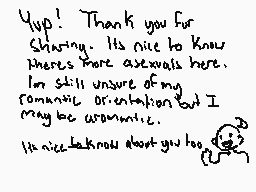 Yup! Thank you fur
sharing. Its nice to know
theres more asexuals here.
I'm still unsure of my
romantic orientation but I
may be aromantic.
Its nice to know about you too